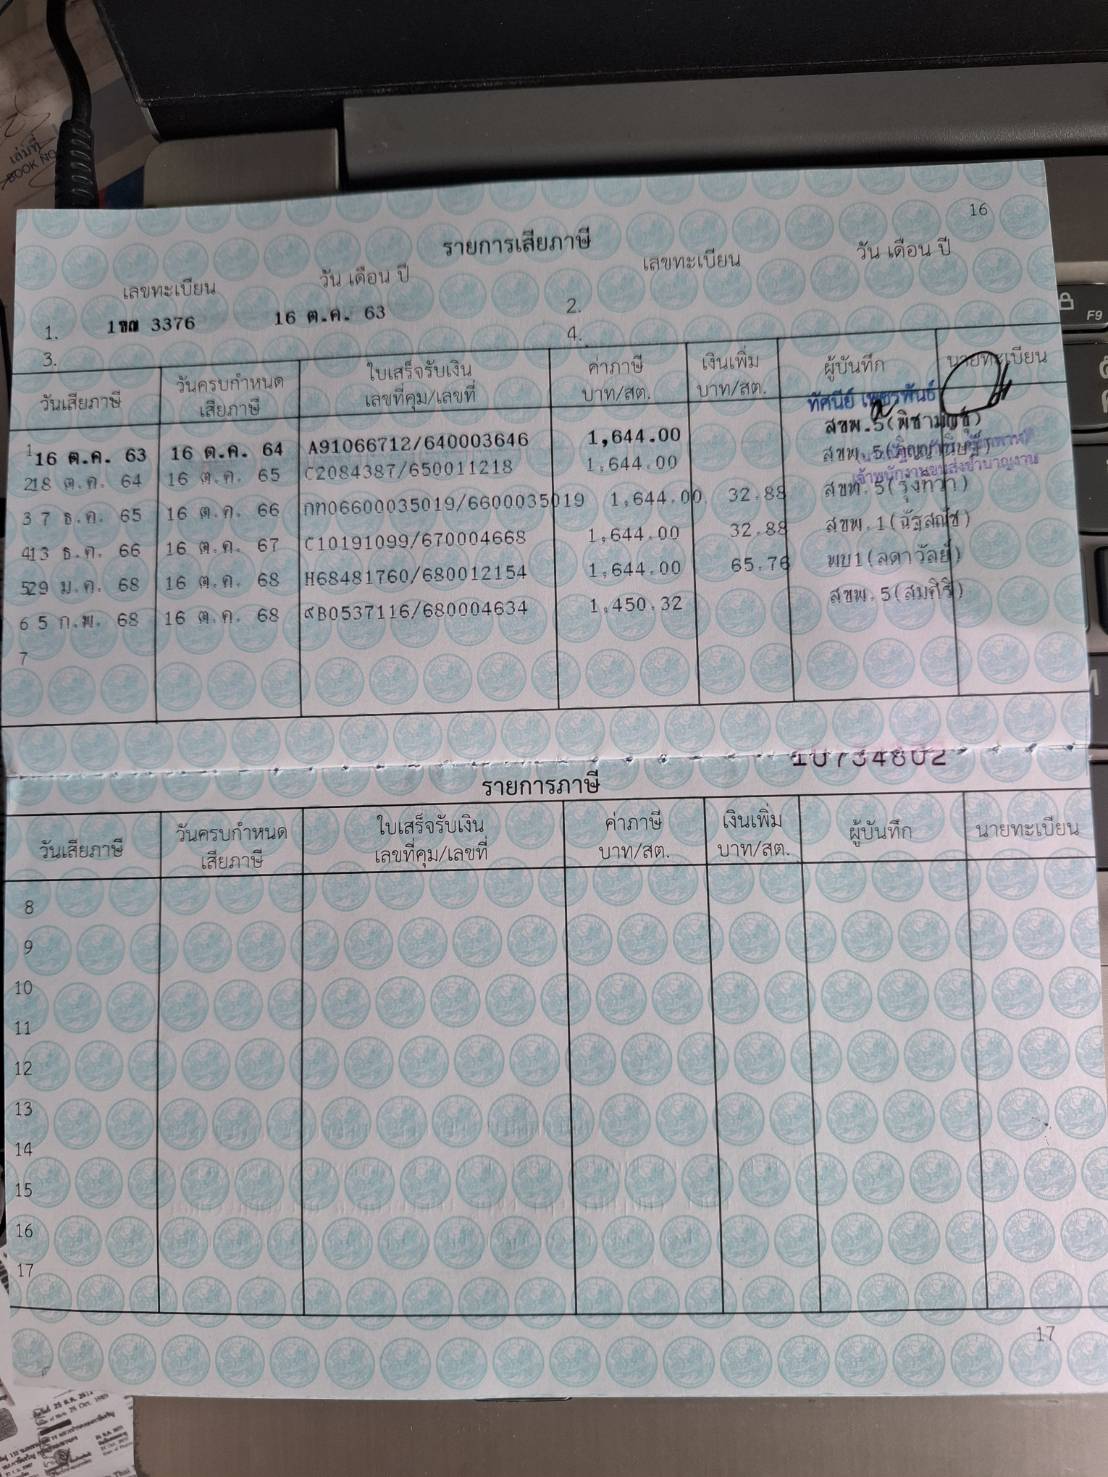 เล่มที่
BOOK NO.
F9
16
รายการเสียภาษี
เลขทะเบียน วัน เดือน ปี เลขทะเบียน วัน เดือน ปี
1. 1ขฌ 3376 16 ต.ค. 63 2.
3. 4.
วันเสียภาษี วันครบกำหนดเสียภาษี ใบเสร็จรับเงิน เลขที่คุม/เลขที่ ค่าภาษี บาท/สต. เงินเพิ่ม บาท/สต. ผู้บันทึก นายทะเบียน
ทัศนีย์ เพชรพันธ์
1 16 ต.ค. 63 16 ต.ค. 64 A91066712/640003646 1,644.00 สขพ.5(พิชามญชุ์)
2 18 ต.ค. 64 16 ต.ค. 65 C2084387/650011218 1,644.00 สขพ.5
เจ้าพนักงานขนส่งชำนาญงาน
3 7 ธ.ค. 65 16 ต.ค. 66 กท06600035019/6600035019 1,644.00 32.88 สขพ.5(รุ่งทิวา)
4 13 ธ.ค. 66 16 ต.ค. 67 C10191099/670004668 1,644.00 32.88 สขพ.1
5 29 ม.ค. 68 16 ต.ค. 68 H68481760/680012154 1,644.00 65.76 พบ1(ลดาวัลย์)
6 5 ก.พ. 68 16 ต.ค. 68 ศB0537116/680004634 1,450.32 สขพ.5(สมศิริ)
7
10734802
รายการภาษี
วันเสียภาษี วันครบกำหนดเสียภาษี ใบเสร็จรับเงิน เลขที่คุม/เลขที่ ค่าภาษี บาท/สต. เงินเพิ่ม บาท/สต. ผู้บันทึก นายทะเบียน
8
9
10
11
12
13
14
15
16
17
17